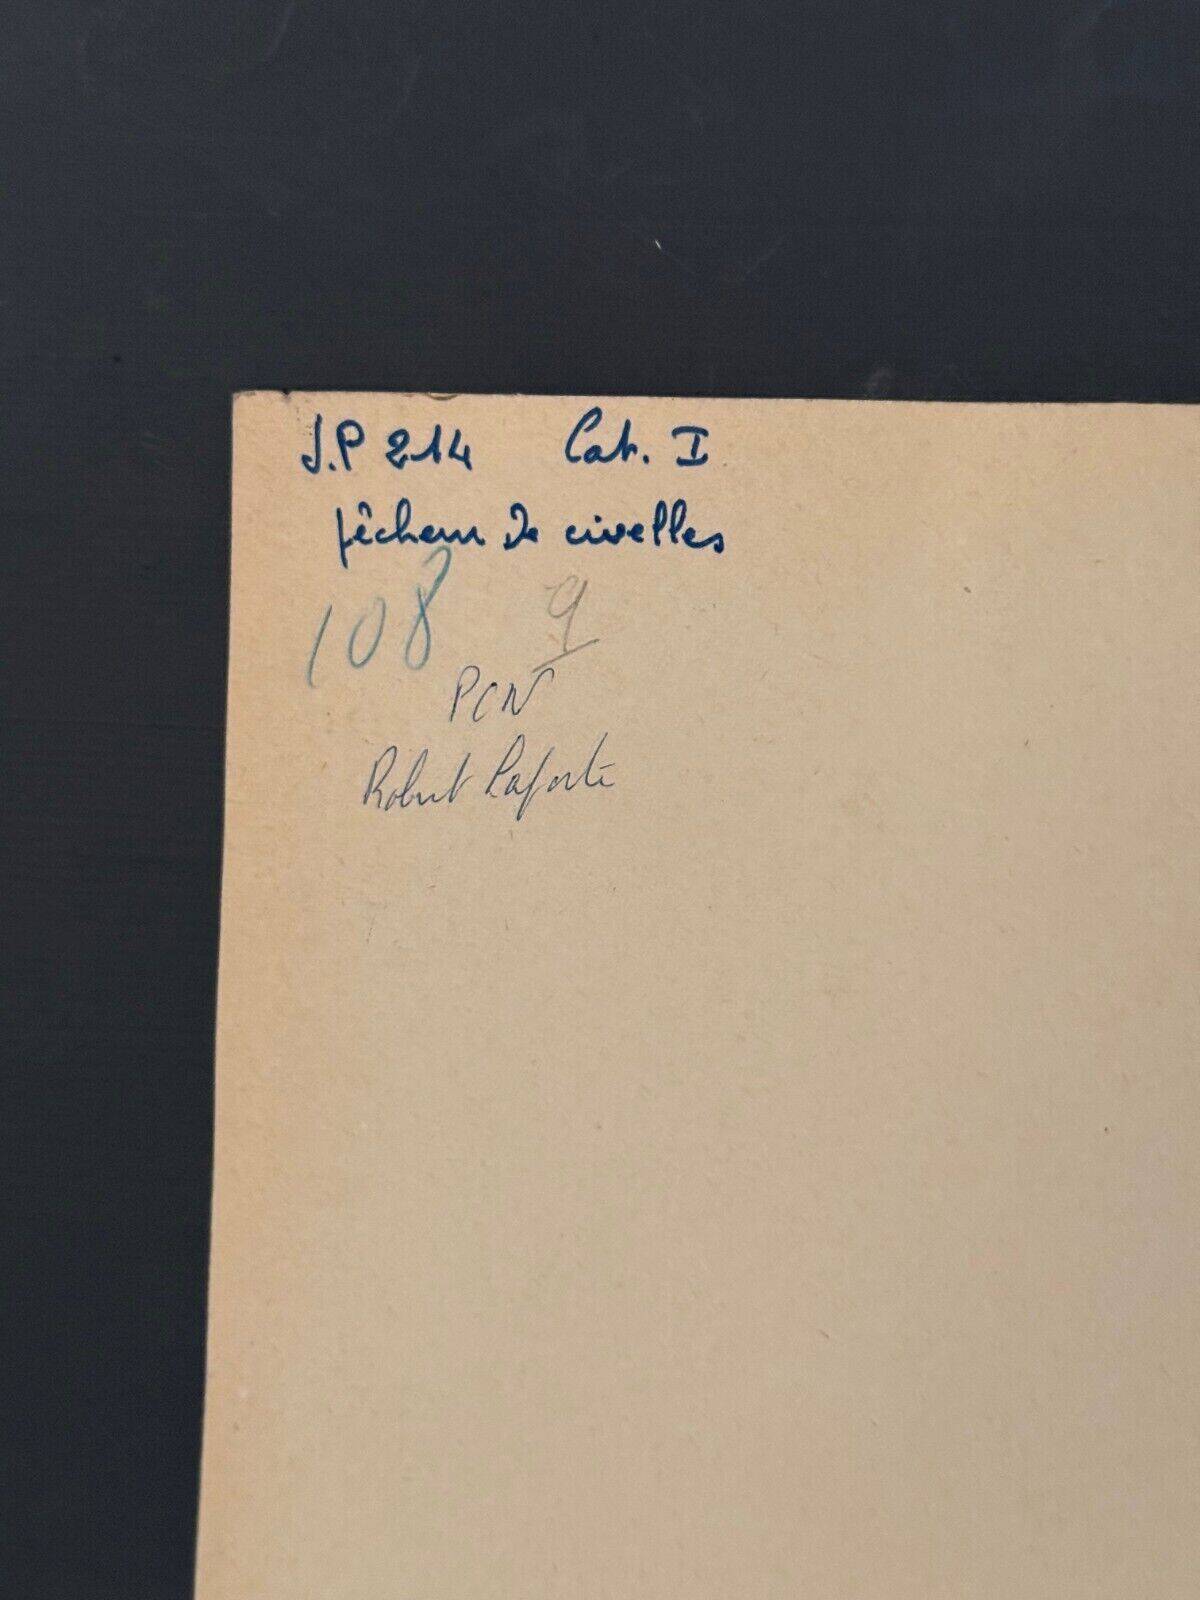 J.P 214 Cat. I
pêcheur de civelles
108 9
PCN
Robert Laforte